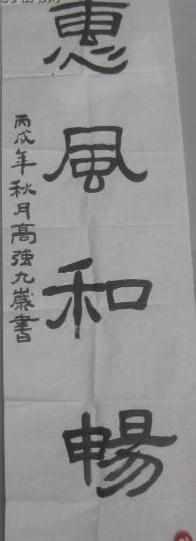 惠風和暢
丙戌年秋月高強九歲書